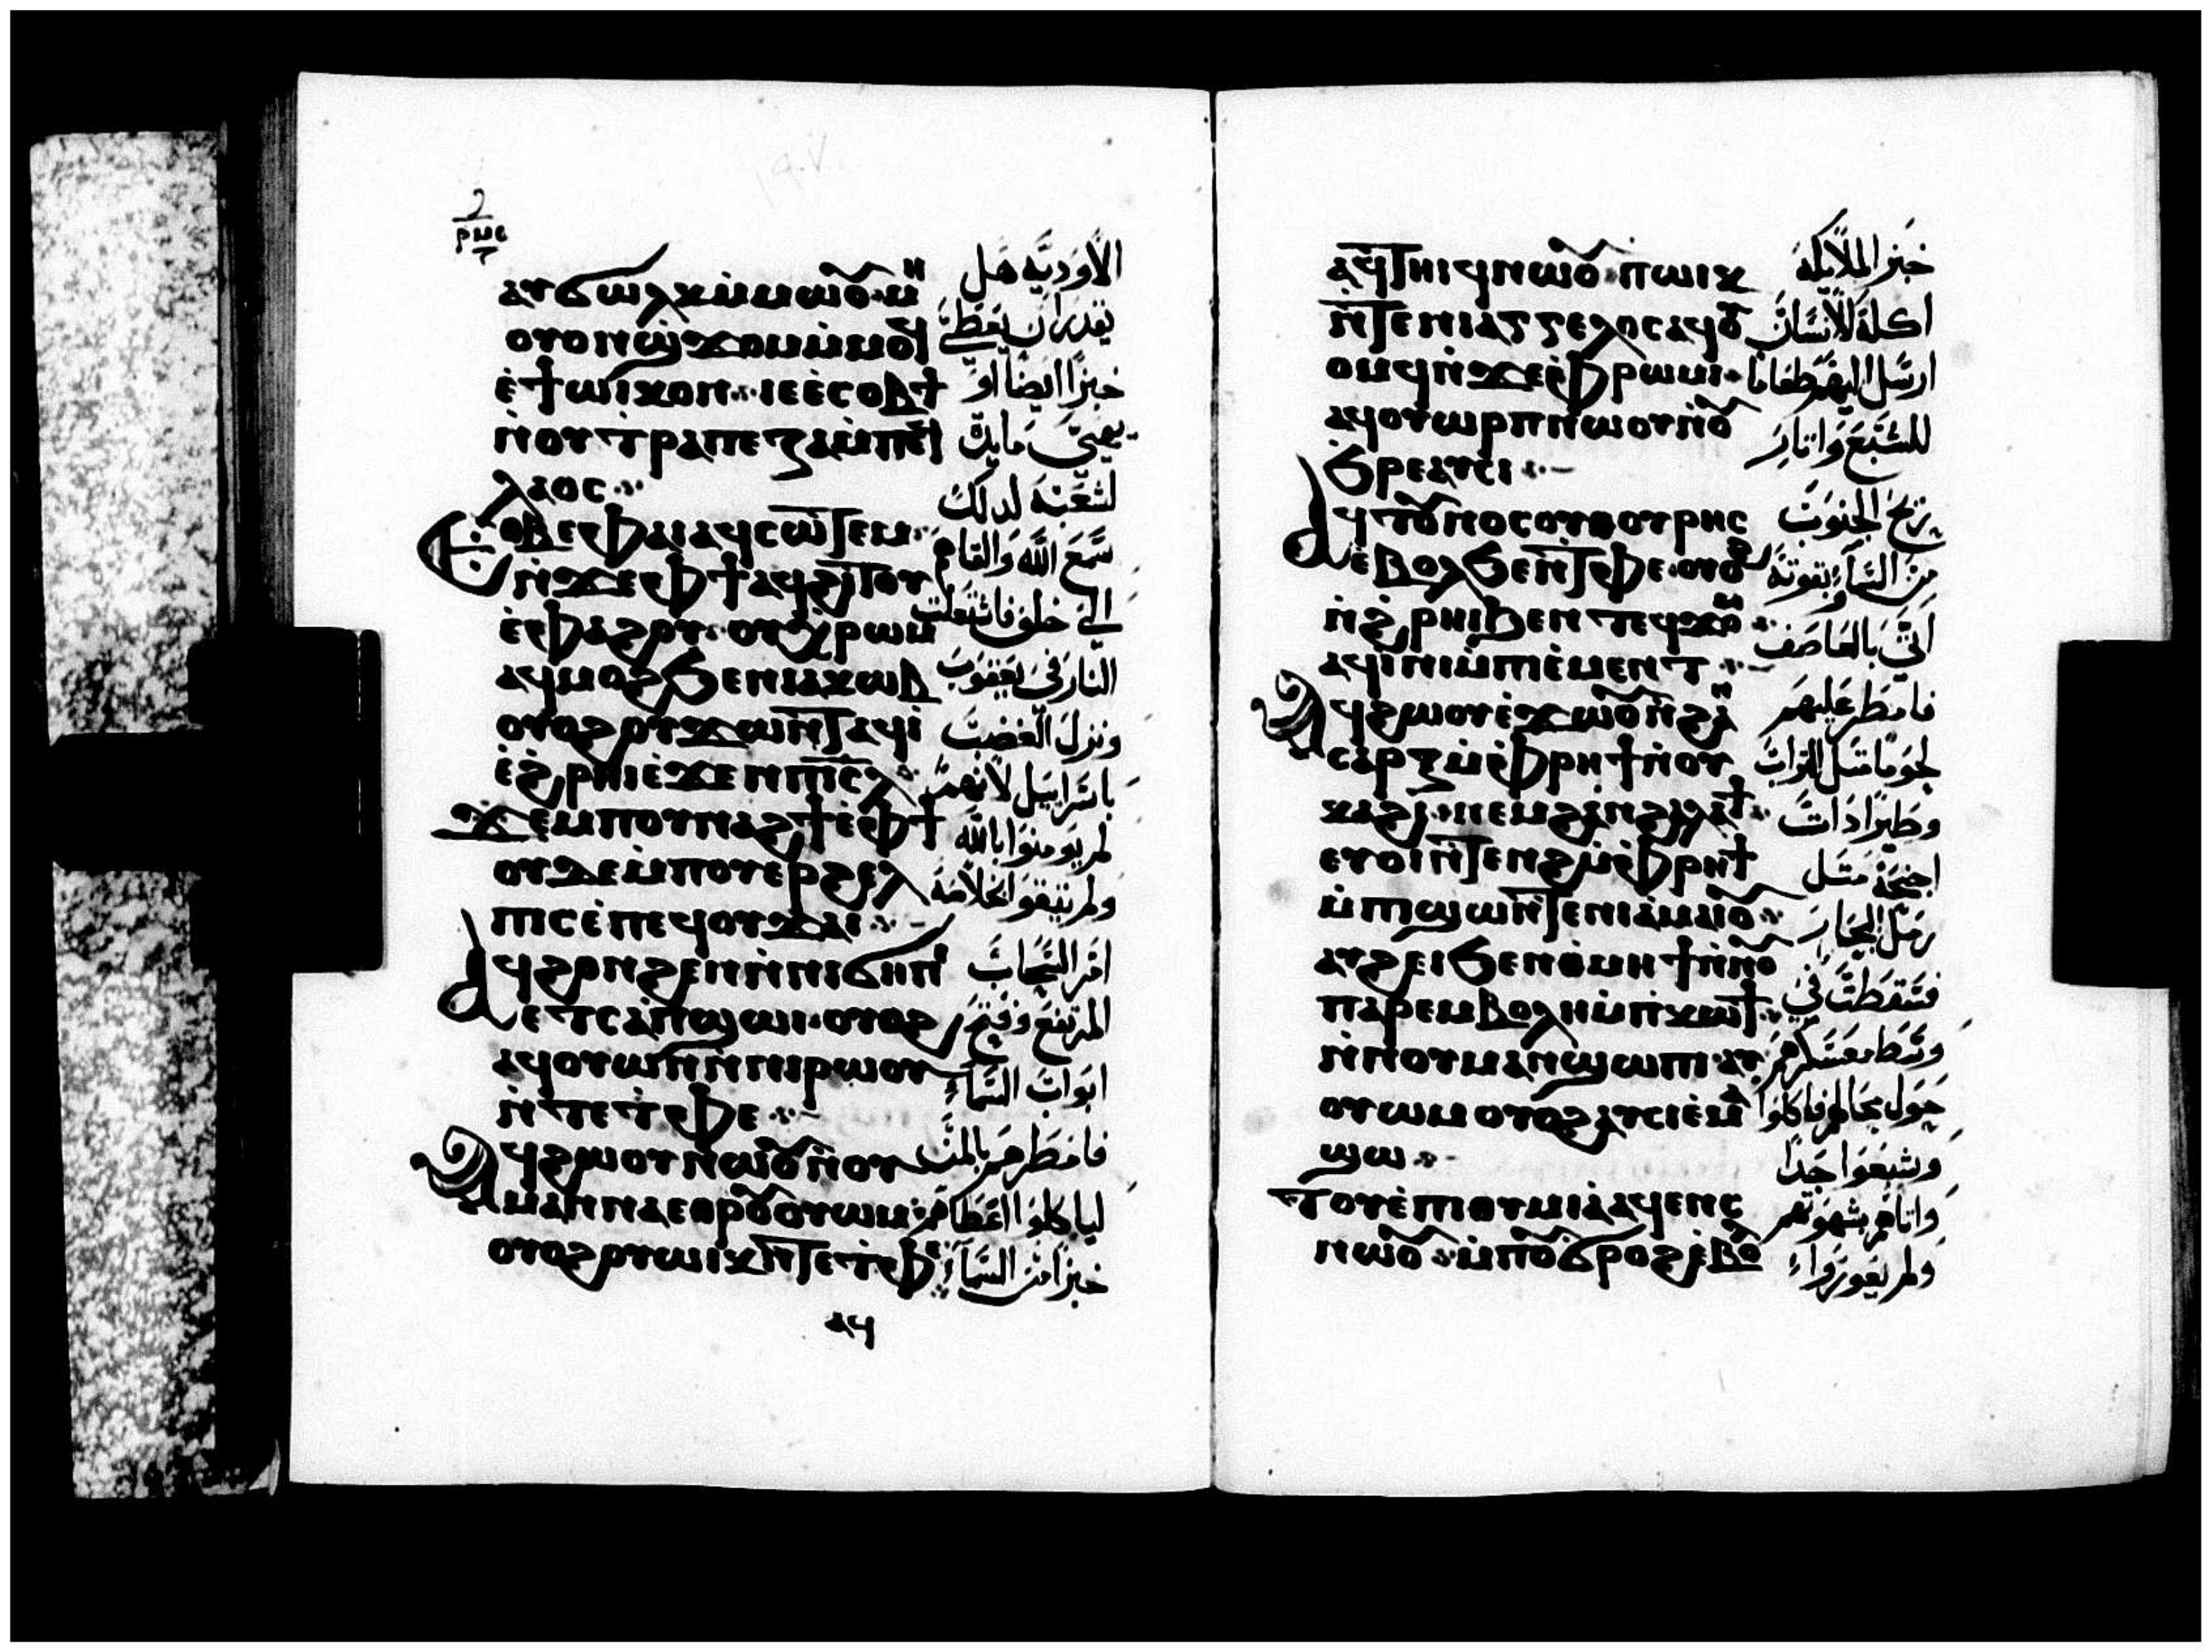 ⲣⲙⲉ
ⲁⲩϭⲱⲗⲕ ⲙ̇ⲙⲱⲟⲩ· ⲙⲏ
ⲟⲩⲟⲛ ϣϫⲟⲙ ⲙ̇ⲙⲟϥ
ⲉ̇ϯⲱⲓⲕⲟⲛ·· ⲓⲉ ⲉ̇ⲥⲟⲃϯ
ⲛ̇ⲟⲩⲧⲣⲁⲡⲉⲍⲁ ⲙ̇ⲡⲉϥ
ⲗⲁⲟⲥ··
ⲉⲑⲃⲉⲫⲁⲓ ⲁϥⲥⲱⲧⲉⲙ·
ⲛ̇ϫⲉⲫϯ ⲁϥϩⲓⲧⲟⲩ
ⲉ̇ⲫⲁϩⲟⲩ· ⲟⲩⲭⲣⲱⲙ
ⲁϥⲙⲟϩ ϧⲉⲛ ⲓⲁⲕⲱⲃ
ⲟⲩⲟϩ ⲟⲩϫⲱⲛⲧ ⲁϥⲓ̇
ⲉ̇ϩⲣⲏⲓ ⲉ̇ϫⲉⲛ ⲡⲓⲥⲗ··
ϫⲉ ⲙⲡⲟⲩⲛⲁϩϯ ⲉ̇ⲫϯ
ⲟⲩⲇⲉ ⲙ̇ⲡⲟⲩⲉⲣϩⲉⲗ
ⲡⲓⲥ ⲉ̇ⲡⲉϥⲟⲩϫⲁⲓ··
ⲁϥϩⲟⲛϩⲉⲛ ⲛ̇ⲛⲓϭⲏⲡⲓ
ⲉⲧⲥⲁⲡ̇ϣⲱⲓ· ⲟⲩⲟϩ
ⲁϥⲟⲩⲱⲛ ⲛ̇ⲛⲓⲣⲱⲟⲩ
ⲛ̇ⲧⲉ ⲧ̇ⲫⲉ··
ⲁϥϩⲱⲟⲩ ⲛⲱⲟⲩ ⲛ̇ⲟⲩ
ⲙⲁⲛⲛⲁ ⲉⲑⲣⲟⲩⲟⲩⲱⲙ··
ⲟⲩⲟϩ ⲟⲩⲱⲓⲕ ⲛ̇ⲧⲉ ⲧ̇ⲫⲉ
ⲁϥ
الاوديه هل
يقدر ان يعطي
خبزا ايضا او
يهيي مايدة
لشعبه لدلك
سمع الله والقاهم
الي خلف فاشتعلت
النار في يعقوب
ونزل الغضب
باسراييل لانهم
لم يومنوا بالله
ولم يتيقنوا بخلاصه
امر السحاب
المرتفع وفتح
ابواب السماء
فامطرهم بالمن
لياكلوا اعطاهم
خبزا من السماء
ⲁϥⲧⲏⲓϥ ⲛⲱⲟⲩ· ⲡⲱⲓⲕ
ⲛ̇ⲧⲉ ⲛⲓⲁⲅⲅⲉⲗⲟⲥ ⲁϥⲟⲩ
ⲟⲙϥ ⲛ̇ϫⲉ ⲫⲣⲱⲙⲓ·
ⲁϥⲟⲩⲱⲣⲡ ⲛⲱⲟⲩ ⲛ̇ⲟⲩ
ϧⲣⲉ ⲁⲩⲥⲓ··
ⲁϥⲧⲟⲩⲛⲟⲥ ⲟⲩⲑⲟⲩⲣⲏⲥ
ⲉ̇ⲃⲟⲗ ϧⲉⲛ ⲧⲫⲉ· ⲟⲩⲟϩ
ⲛ̇ϩⲣⲏⲓ ϧⲉⲛ ⲧⲉϥϫⲟⲙ··
ⲁϥⲓ̇ⲛⲓ ⲙ̇ⲡⲓⲉ̇ⲙⲉⲛⲧ··
ⲁϥϩⲱⲟⲩ ⲉ̇ϫⲱⲟⲩ ⲛ̇ϩⲁⲛ
ⲥⲁⲣⲝ ⲙ̇ⲫⲣⲏϯ ⲛ̇ⲟⲩ
ⲕⲁϩⲓ· ⲛⲉⲙ ϩⲁⲛϩⲁⲗⲁϯ·
ⲉⲩⲟⲓ ⲛ̇ⲧⲉⲛϩ ⲙ̇ⲫⲣⲏϯ
ⲙ̇ⲡⲓϣⲱ ⲛ̇ⲧⲉ ⲛⲓⲁⲙⲁⲓⲟⲩ··
ⲁⲩϩⲉⲓ ϧⲉⲛ ⲑⲙⲏϯ ⲛ̇ⲛⲟⲩ
ⲡⲁⲣⲉⲙⲃⲟⲗⲏ ⲙ̇ⲡ̇ⲕⲱϯ·
ⲛ̇ⲛⲟⲩⲙⲁⲛ̇ϣⲱⲡⲓ· ⲁⲩ
ⲟⲩⲱⲙ ⲟⲩⲟϩ ⲁⲩⲥⲓ ⲉ̇ⲙⲁ
ϣⲱ··
ⲧⲟⲩⲉ̇ⲡⲓⲑⲩⲙⲓⲁ ⲁϥⲉⲛⲥ
ⲛⲱⲟⲩ·· ⲙ̇ⲡⲟⲩϭⲣⲟϩ ⲉ̇ⲃⲟ
خبز الملايكه
اكله الانسان
ارسل اليهم طعاما
للشبع واثار
ريح الجنوب
من السماء بقوته
اتي بالعاصف
فامطر عليهم
لحوما مثل التراب
وطيرا دات
اجنحة مثل
رمل البحار
فسقطت في
وسط معسكرهم
حول خيامهم فاكلوا
وشبعوا جدا
واتاهم بشهوتهم
ولم يعوزوا